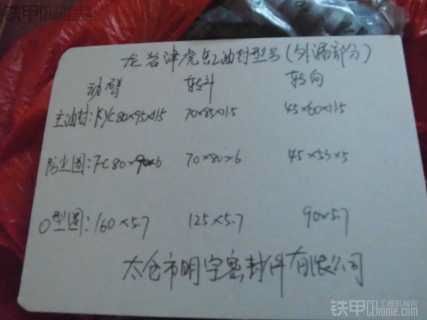 铁甲
龙岩津虎缸油封型号(外漏部分)
动臂 转斗 转向
主油封: KYC80×95×115 70×85×115 45×60×115
防尘圈: FC80×90×6 70×80×6 45×53×5
O型圈: 160×5.7 125×5.7 90×5.7
太仓市明宇密封件有限公司
铁甲